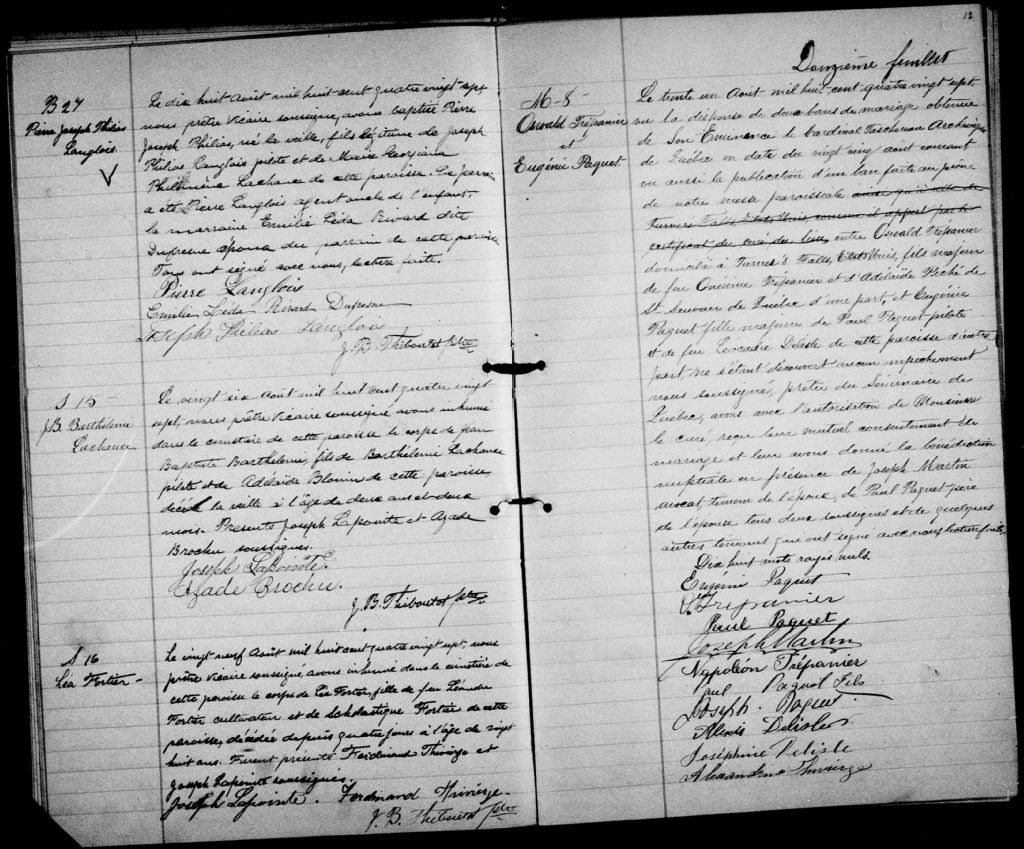 B 27
Pierre Joseph Philias
Langlois
Le dix huit Août mil huit cent quatre vingt sept
nous prêtre Vicaire soussigné, avons baptisé Pierre
Joseph Philias, né la veille, fils légitime de Joseph
Philias Langlois pilote et de Marie Georgiana
Philomène Lachance de cette paroisse. Le parrain
a été Pierre Langlois agent oncle de l'enfant,
la marraine Emilie Léda Rivard dite
Dufresne épouse du parrain de cette paroisse
Tous ont signé avec nous, lecture faite.
Pierre Langlois
Emilie Léda Rivard Dufresne
Joseph Philias Langlois
J. B. Thiboutot ptre
S 15
J.B. Barthélemi
Lachance
Le vingt six Août mil huit cent quatre vingt
sept, nous prêtre Vicaire soussigné avons inhumé
dans le cimetière de cette paroisse le corps de Jean
Baptiste Barthélemi, fils de Barthélemi Lachance
pilote et de Adélaïde Blouin de cette paroisse
décédé la veille à l'âge de deux ans et deux
mois. Présents Joseph Lapointe et Azade
Brochu soussignés.
Joseph Lapointe
Azade Brochu.
J. B. Thiboutot ptre
S 16
Léa Fortier
Le vingt neuf Août mil huit cent quatre vingt sept, nous
prêtre Vicaire soussigné, avons inhumé dans le cimetière de
cette paroisse le corps de Léa Fortier, fille de feu Léandre
Fortier cultivateur et de Scholastique Fortier de cette
paroisse, décédée depuis quatre jours à l'âge de vingt
huit ans. Furent présents Ferdinand Thivierge et
Joseph Lapointe soussignés.
Joseph Lapointe. Ferdinand Thivierge.
J. B. Thiboutot ptre
12
Douzième feuillet
M-8
Oswald Trépanier
et
Eugénie Paquet
Le trente un Aout mil huit cent quatre vingt sept,
vu la dispense de deux bans de mariage obtenue
de Son Eminence le Cardinal Taschereau Archevêque
de Québec en date du vingt cinq août courant
vu aussi la publication d'un ban faite au prône
de notre messe paroissiale ainsi qu'à celle de
Turners Falls, Etats Unis, comme il appert par le
certificat du curé du lieu, entre Oswald Trépanier
domicilié à Turner's Falls, Etats Unis, fils majeur
de feu Onésime Trépanier et d'Adélaïde Piché de
St Sauveur de Québec d'une part, et Eugénie
Paquet fille majeure de Paul Paquet pilote
et de feu Léocadie Delisle de cette paroisse d'autre
part, ne s'étant découvert aucun empechement
nous soussigné, prêtre du Séminaire de
Québec, avons avec l'autorisation de Monsieur
le curé, reçu leur mutuel consentement de
mariage et leur avons donné la bénédiction
nuptiale en présence de Joseph Martin
avocat, témoin de l'époux, de Paul Paquet père
de l'épouse tous deux soussignés et de quelques
autres témoins qui ont signé avec nous lecture faite.
Dix huit mots rayés nuls.
Eugénie Paquet
O. Trépanier
Paul Paquet
Joseph Martin
Napoléon Trépanier
Paul Paquet Fils
Joseph Paquet
Alexis Delisle
Joséphine Delisle
Alexandrine Thivierge